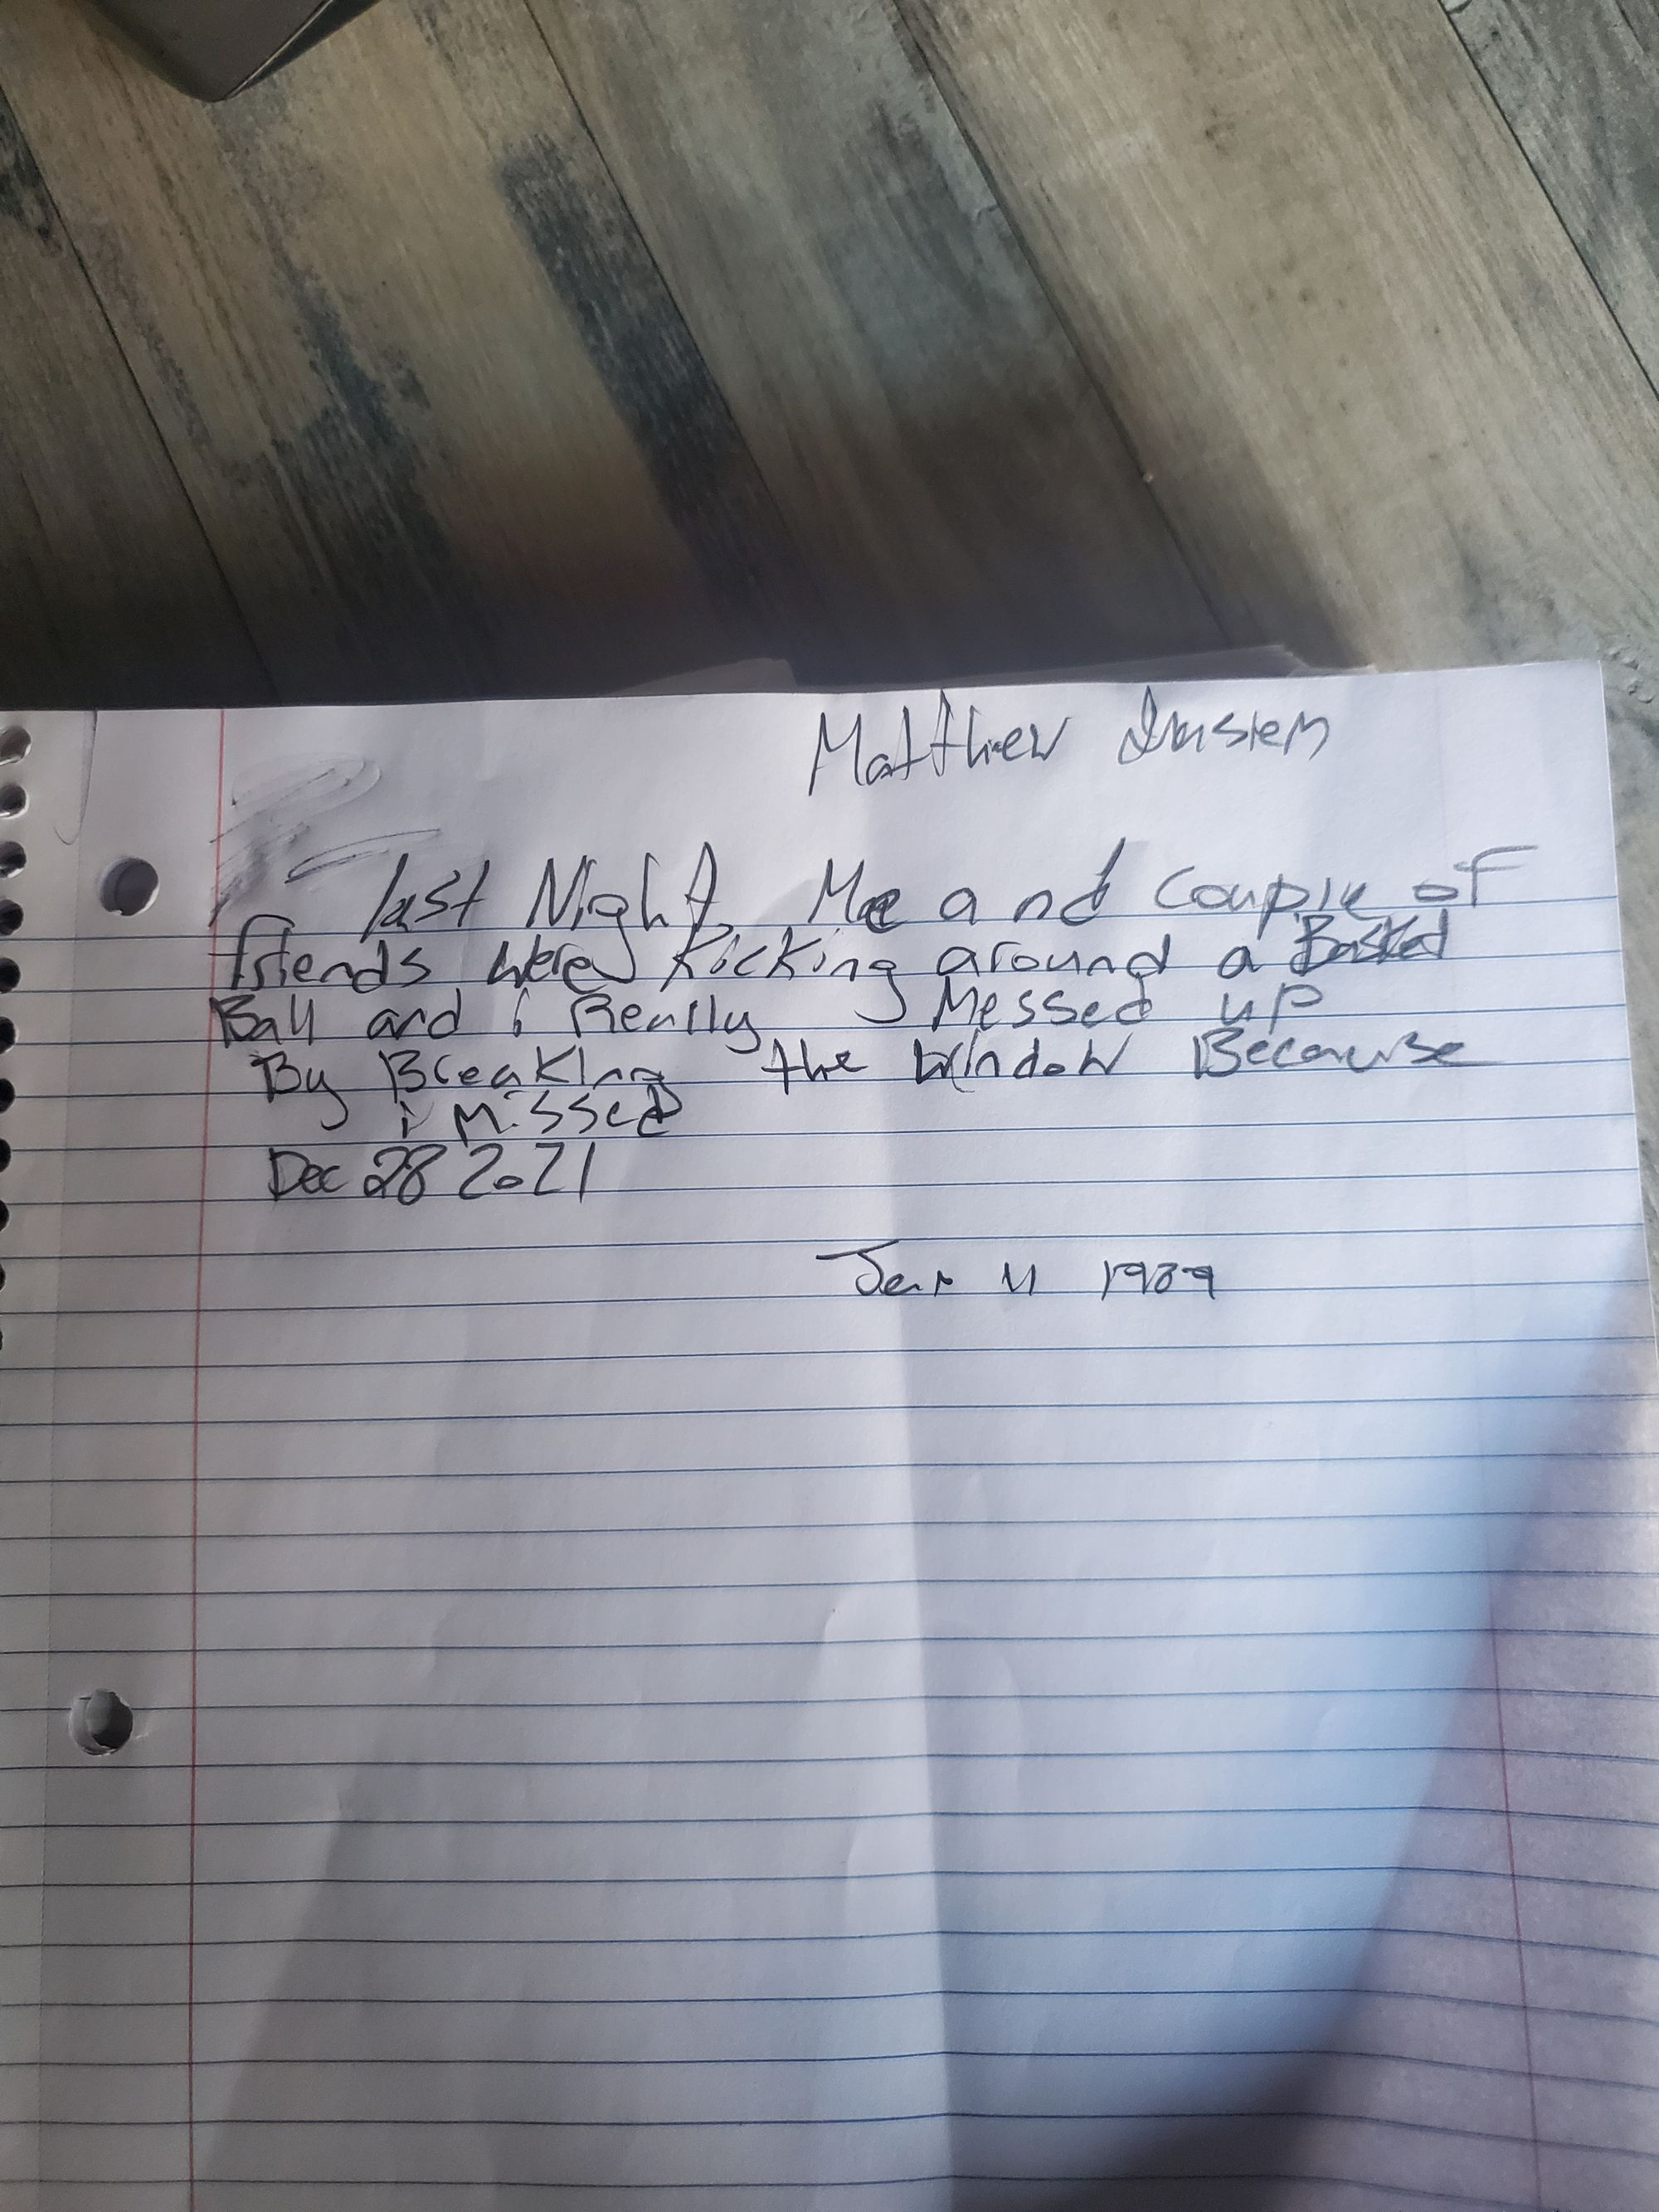 Matthew
last Night, Me and Couple of
friends were Kicking around a Basket
Ball and i Really Messed up
By Breaking the Window Because
i Missed
Dec 28 2021
Jan 11 1989